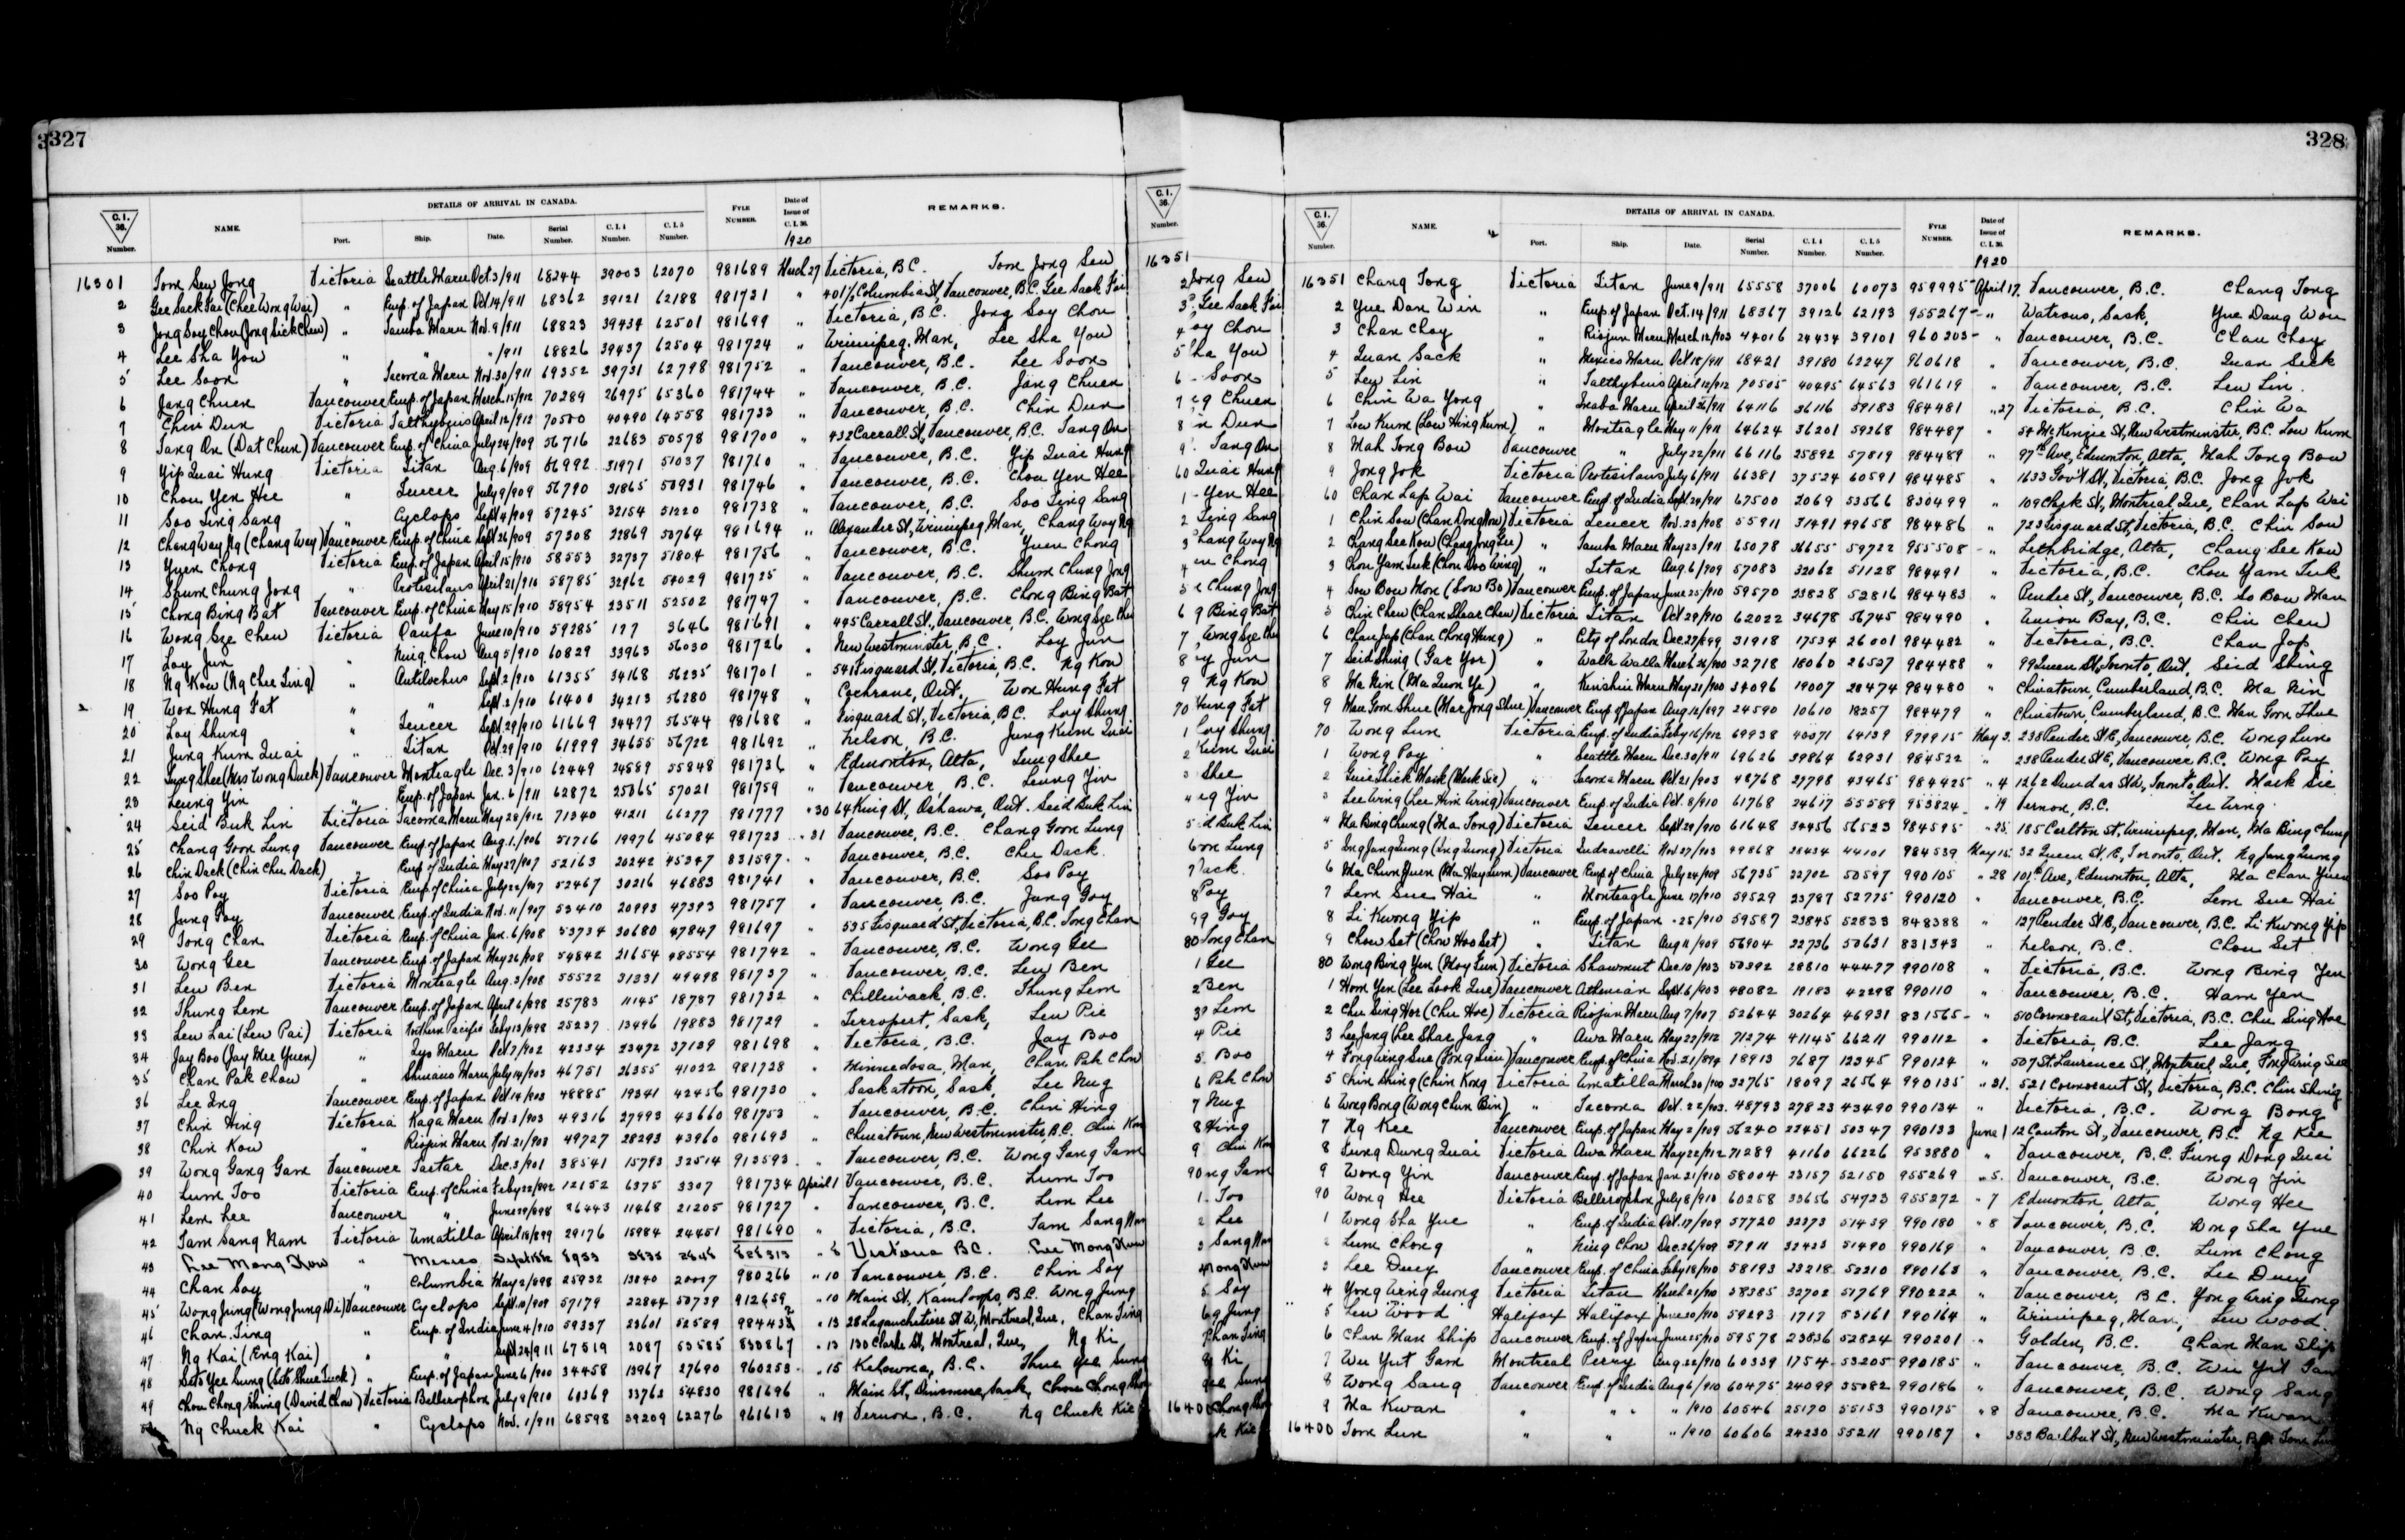 3327
C. I. 36. Number. NAME. DETAILS OF ARRIVAL IN CANADA. Port. Ship. Date. Serial Number. C. I. 4 Number. C. I. 5 Number. FYLE NUMBER. Date of Issue of C. I. 36. 1920 REMARKS.
16301 Tom Sew Jong Victoria Seattle Maru Oct 3/911 68244 39003 62070 981689 March 27 Victoria, B.C. Tom Jong Sew
2 Gee Sack Fai (Chee Wong Wai) " Emp. of Japan Oct 14/911 68362 39121 62188 981731 " Columbia St, Vancouver, B.C. Gee Sack Fai
3 Jong Soy Chou (Jong Sick Chew) " Tamba Maru Nov. 9/911 68823 39434 62501 981699 " Victoria, B.C. Jong Soy Chou
4 Lee Sha You " " " /911 68826 39437 62504 981724 " Winnipeg, Man, Lee Sha You
5 Lee Soon " Tacoma Maru Nov. 30/911 69352 39731 62798 981752 " Vancouver, B.C. Lee Soon
6 Jang Chuen Vancouver Emp. of Japan March 15/912 70289 26975 65360 981744 " Vancouver, B.C. Jang Chuen
7 Chin Dun Victoria Talthybius April 12/912 70500 40490 64558 981733 " Vancouver, B.C. Chin Dun
8 Tang On (Dat Chun) Vancouver Emp. of China July 24/909 56716 22683 50578 981700 " 432 Carrall St, Vancouver, B.C. Tang On
9 Yip Quai Hung Victoria Titan Aug. 6/909 56992 31971 51037 981760 " Vancouver, B.C. Yip Quai Hung
10 Chou Yen Hee " Teucer July 9/909 56790 31865 50931 981746 " Vancouver, B.C. Chou Yen Hee
11 Soo Ting Sang " Cyclops Sept 4/909 57245 32154 51220 981738 " Vancouver, B.C. Soo Ting Sang
12 Chang Way Ng (Chang Way) Vancouver Emp. of China Sept 26/909 57308 22869 50764 981694 " Alexander St, Winnipeg, Man, Chang Way Ng
13 Yuen Chong Victoria Emp. of Japan April 15/910 58553 32737 51804 981756 " Vancouver, B.C. Yuen Chong
14 Shum Chung Jong " Protesilaus April 21/910 58785 32962 54029 981725 " Vancouver, B.C. Shum Chung Jong
15 Chong Bing Bat Vancouver Emp. of China May 15/910 58954 23511 52502 981747 " Vancouver, B.C. Chong Bing Bat
16 Wong Sze Chew Victoria June 10/910 59285 177 3646 981691 " 495 Carrall St, Vancouver, B.C. Wong Sze
17 Loy Jun " Ning Chow Aug 5/910 60829 33963 56030 981726 " New Westminster, B.C. Loy Jun
18 Ng Kow (Ng Chee Ting) " Antilochus Sept. 2/910 61355 34168 56235 981701 " 541 Fisguard St, Victoria, B.C. Ng Kow
19 Won Hung Fat " " Sept. 2/910 61400 34213 56280 981748 " Cochrane, Ont., Won Hung Fat
20 Loy Shung " Teucer Sept. 29/910 61669 34477 56544 981688 " Fisguard St, Victoria, B.C. Loy Shung
21 Jung Kum Quai " Titan Oct. 29/910 61999 34655 56722 981692 " Nelson, B.C. Jung Kum Quai
22 Tung Shee (Mrs Wong Duck) Vancouver Monteagle Dec. 3/910 62449 24589 55848 981736 " Edmonton, Alta, Tung Shee
23 Leung Yin " Emp. of Japan Jan. 6/911 62872 25765 57021 981759 " Vancouver, B.C. Leung Yin
24 Seid Buk Lin Victoria Tacoma Maru May 28/912 71340 41211 66277 981777 " 30 64 King St, Oshawa, Ont. Seid Buk Lin
25 Chang Goon Lung Vancouver Emp. of Japan Aug. 1/906 51716 19976 45084 981723 " 31 Vancouver, B.C. Chang Goon Lung
26 Chin Dack (Chin Chu Dack) " Emp. of India May 27/907 52163 20242 45347 831597 " Vancouver, B.C. Chu Dack
27 Soo Poy Victoria Emp. of China July 26/907 52467 30216 46883 981741 " Vancouver, B.C. Soo Poy
28 Jung Goy Vancouver Emp. of India Nov. 11/907 53410 20993 47393 981757 " Vancouver, B.C. Jung Goy
29 Tong Chan Victoria Emp. of China Jan. 6/908 53734 30680 47847 981697 " 535 Fisguard St, Victoria, B.C. Tong Chan
30 Wong Gee Vancouver Emp. of Japan May 26/908 54842 21654 48554 981742 " Vancouver, B.C. Wong Gee
31 Lew Ben Victoria Monteagle Aug. 3/908 55522 31331 49498 981737 " Vancouver, B.C. Lew Ben
32 Thung Lem Vancouver Emp. of Japan April 6/898 25783 11145 18787 981732 " Chilliwack, B.C. Thung Lem
33 Lew Lai (Lew Pai) Victoria Northern Pacific Feby 13/898 25237 13496 19883 981729 " Sask, Lew Pie
34 Jay Boo (Jay Mee Yuen) " Iyo Maru Oct 7/902 42334 23472 37139 981698 " Victoria, B.C. Jay Boo
35 Chan Pak Chow " Shinano Maru July 14/903 46751 26355 41022 981728 " Minnedosa, Man, Chan Pak Chow
36 Lee Ing Vancouver Emp. of Japan Oct 14/903 48885 19341 42456 981730 " Saskatoon, Sask, Lee Nug
37 Chin Hing Victoria Kaga Maru Nov. 3/903 49316 27993 43660 981753 " Vancouver, B.C. Chin Hing
38 Chin Kow " Riojun Maru Nov. 21/903 49727 28293 43960 981693 " Chinatown, New Westminster, B.C. Chin Kow
39 Wong Gang Gam Vancouver Tartar Dec. 3/901 38541 15793 32514 913593 " Vancouver, B.C. Wong Gang Gam
40 Lum Too Victoria Emp. of China Feby 22/892 12152 6375 3307 981734 April 1 Vancouver, B.C. Lum Too
41 Lem Lee Vancouver " June 29/898 26443 11468 21205 981727 " Vancouver, B.C. Lem Lee
42 Tam Sang Nam Victoria Umatilla April 18/899 29176 15984 24451 981690 " Victoria, B.C. Tam Sang Nam
43 Lee Mong Kow " Mexico " 8 Victoria BC. Lee Mong Kow
44 Chan Soy " Columbia May 2/898 25932 13840 20027 980266 " 10 Vancouver, B.C. Chin Soy
45 Wong Jung (Wong Jung Di) Vancouver Cyclops Sept. 10/909 57179 22844 50739 912659 " 10 Main St, Kamloops, B.C. Wong Jung
46 Chan Ting " Emp. of India June 4/910 59337 23601 52589 984432 " 13 28 Lagauchetiere St W, Montreal, Que, Chan Ting
47 Ng Kai (Eng Kai) " " Sept 24/911 67519 2087 53585 830867 " 13 130 Clarke St, Montreal, Que, Ng Ki
48 Seto Yee Sung (Seto Shue Tuck) " Emp. of Japan June 6/900 34458 13967 27690 960253 " 15 Kelowna, B.C. Shue Yee Sung
49 Chou Chong Shing (David Chou) Victoria Bellerophon July 8/910 60369 33763 54830 981696 " Main St, Dinsmore, Sask, Chou Chong
50 Ng Chuck Kai " Cyclops Nov. 1/911 68598 39209 62276 961613 " 19 Vernon, B.C. Ng Chuck Kie
C. I. 36. Number.
16351
2 Jong Sew
3 Gee Sack Fai
4 oy Chou
5 ha You
6 Soon
7 ng Chuen
8 in Dun
9 Tang On
60 Quai Hung
1 Yen Hee
2 Ting Sang
3 hang Way Ng
4 en Chong
5 Chung Jong
6 g Bing Bat
7 Wong Sze
8 oy Jun
9 Ng Kow
70 Hung Fat
1 Loy Shung
2 Kum Quai
3 Shee
" ng Yin
5 d Buk Lin
6 on Lung
7 Dack
8 Poy
9 g Goy
80 Tong Chan
1 Gee
2 Ben
3 Lem
4 Pie
5 Boo
6 Pak Chow
7 Nug
8 Hing
9 Chin Kow
90 ng Gam
1 Too
2 Lee
3 Sang Nam
4 Mong Kow
5 Soy
6 g Jung
7 Chan Ting
8 Ki
9 Yee Sung
16400 Chong
k Kie
328
C. I. 36. Number. NAME. DETAILS OF ARRIVAL IN CANADA. Port. Ship. Date. Serial Number. C. I. 4 Number. C. I. 5 Number. FYLE NUMBER. Date of Issue of C. I. 36. 1920 REMARKS.
16351 Chang Tong Victoria Titan June 9/911 65558 37006 60073 959995 April 17 Vancouver, B.C. Chang Tong
2 Yue Dan Win " Emp. of Japan Oct. 14/911 68367 39126 62193 955267 " Watrous, Sask, Yue Dang Won
3 Chan Choy " Riojun Maru March 12/903 44016 24434 39101 960303 " Vancouver, B.C. Chan Choy
4 Quan Sack " Mexico Maru Oct 18/911 68421 39180 62247 960618 " Vancouver, B.C. Quan Sick
5 Lew Lin " Talthybius April 12/912 70505 40495 64563 961619 " Vancouver, B.C. Lew Lin
6 Chin Wa Yong " Inaba Maru April 26/911 64116 36116 59183 984481 " 27 Victoria, B.C. Chin Wa
7 Low Kum (Low Hing Kum) " Monteagle May 11/911 64624 36201 59268 984487 " 54 McKenzie St, New Westminster, B.C. Low Kum
8 Mah Tong Bow Vancouver " July 22/911 66116 25892 57819 984489 " 97th Ave, Edmonton, Alta, Mah Tong Bow
9 Jong Jok Victoria Protesilaus July 6/911 66381 37524 60591 984485 " 1633 Gov't St, Victoria, B.C. Jong Jok
60 Chan Lap Wai Vancouver Emp. of India Sept 24/911 67500 2069 53566 830499 " 109 Clark St, Montreal, Que, Chan Lap Wai
1 Chin Sow (Chan Dong How) Victoria Teucer Nov. 23/908 55911 31491 49658 984486 " 723 Fisguard St, Victoria, B.C. Chin Sow
2 Chang See Kow (Chang Jong Lee) " Tamba Maru May 23/911 65078 36655 59722 955508 " Lethbridge, Alta, Chang See Kow
3 Chou Yam Tuk (Chou Doo Wing) " Titan Aug. 6/909 57083 32062 51128 984491 " Victoria, B.C. Chou Yam Tuk
4 Sow Bow Mon (Sow Bo) Vancouver Emp. of Japan June 25/910 59570 23828 52816 984483 " Pender St, Vancouver, B.C. So Bow Man
5 Chin Chew (Chan Shear Chew) Victoria Titan Oct 29/910 62022 34678 56745 984490 " Union Bay, B.C. Chin Chew
6 Chan Jap (Chan Chong Hung) " City of London Dec. 27/899 31918 17534 26001 984482 " Victoria, B.C. Chan Jap
7 Seid Shing (Gar Yor) " Walla Walla March 26/900 32718 18060 26527 984488 " 99 Queen St, Toronto, Ont, Seid Shing
8 Ma Nin (Ma Quon Ye) " Kinshiu Maru May 21/900 34096 19007 28474 984480 " Chinatown, Cumberland, B.C. Ma Nin
9 Man Goon Shue (Mar Jong Shue) Vancouver Emp of Japan Aug. 12/897 24590 10610 18257 984479 " Chinatown, Cumberland, B.C. Man Goon Shue
70 Wong Lun Victoria Emp. of India Feby 16/912 69938 40071 64139 979915 May 3. 238 Pender St E, Vancouver, B.C. Wong Lun
1 Wong Poy " Seattle Maru Dec. 30/911 69626 39864 62931 984522 " 238 Pender St E, Vancouver B.C. Wong Poy
2 Shick Mark (Mark Sie) " Tacoma Maru Oct 21/903 48768 27798 43465 984425 " 4 1262 Dundas St W, Toronto, Ont. Mark Sie
3 Lee Wing (Lee Him Wing) Vancouver Emp. of India Oct. 8/910 61768 24617 55589 953824 " 14 Vernon, B.C. Lee Wing
" Ma Bing Chung (Ma Tong) Victoria Teucer Sept 29/910 61648 34456 56523 984595 " 25. 185 Carlton St, Winnipeg, Man, Ma Bing Chung
5 Ing Jang Quong (Ing Quong) Victoria Indravelli Nov 27/903 49868 28434 44101 984539 May 15. 32 Queen St. E, Toronto, Ont. Ng Jang Quong
6 Ma Chun Yuen (Ma Hay Lum) Vancouver Emp of China July 24/909 56735 22702 50597 990105 " 28 101st Ave, Edmonton, Alta, Ma Chan Yuen
7 Lem Sue Hai " Monteagle June 17/910 59529 23787 52775 990120 " Vancouver, B.C. Lem Sue Hai
8 Li Kwong Yip " Emp. of Japan " 25/910 59587 23845 52833 848388 " 127 Pender St E, Vancouver, B.C. Li Kwong Yip
9 Chow Set (Chow Hoo Set) " Titan Aug 11/909 56904 22736 50631 831343 " Nelson, B.C. Chou Set
80 Wong Bing Yen (Moy Fun) Victoria Shawmut Dec 10/903 50392 28810 44477 990108 " Victoria, B.C. Wong Bing Yen
1 Hom Yen (Lee Look Que) Vancouver Athenian Sept. 6/903 48082 19183 42298 990110 " Vancouver, B.C. Ham Yen
2 Chu Sing Hor (Chu Hoe) Victoria Riojun Maru Aug 7/907 52644 30264 46931 831565 " 510 Cormorant St, Victoria, B.C. Chu Sing Hoe
3 Lee Jang (Lee Shar Jang " Awa Maru May 22/912 71274 41145 66211 990112 " Victoria, B.C. Lee Jang
4 Fong Wing Sue (Fong Sieu) Vancouver Emp. of China Nov. 21/894 18913 7687 12345 990124 " 507 St. Laurence St, Montreal, Que, Fong Wing See
5 Chin Shing (Chin Kong Victoria Umatilla March 30/900 32765 18097 26564 990135 " 31. 521 Cormorant St, Victoria, B.C. Chin Shing
6 Wong Bong (Wong Chun Bin) " Tacoma Oct. 22/903 48793 27823 43490 990134 " Victoria, B.C. Wong Bong
7 Ng Kee Vancouver Emp. of Japan May 2/909 56240 22451 50347 990133 June 1 12 Canton St, Vancouver, B.C. Ng Kee
8 Fung Dung Quai Victoria Awa Maru May 22/912 71289 41160 66226 953880 " Vancouver, B.C. Fung Dong Quai
9 Wong Yin Vancouver Emp. of Japan Jan 21/910 58004 23157 52150 955269 " 5. Vancouver, B.C. Wong Yin
90 Wong Hee Victoria Bellerophon July 8/910 60258 33656 54723 955272 " 7 Edmonton, Alta, Wong Hee
1 Wong Sha Yue " Emp. of India Oct. 17/909 57720 32373 51439 990180 " 8 Vancouver, B.C. Wong Sha Yue
2 Lum Chong " Ning Chow Dec. 26/909 57911 32423 51490 990169 " Vancouver, B.C. Lum Chong
3 Lee Duey Vancouver Emp. of China Feby 18/910 58193 23218 52210 990163 " Vancouver, B.C. Lee Duey
4 Yong Wing Quong Victoria Titan March 21/910 58385 32702 51769 990222 " Vancouver, B.C. Yong Wing Quong
5 Lew Wood Halifax Halifax June 20/910 59293 1717 53161 990164 " Winnipeg, Man, Lew Wood
6 Chan Man Ship Vancouver Emp. of Japan June 25/910 59578 23836 52824 990201 " Golden, B.C. Chan Man Ship
7 Wu Yut Gam Montreal Perry Aug. 22/910 60339 1754 53205 990185 " Vancouver, B.C. Wu Yut Gam
8 Wong Sang Vancouver Emp. of India Aug 6/910 60475 24099 55082 990186 " Vancouver, B.C. Wong Sang
9 Ma Kwan " " " /910 60546 25170 55153 990175 " 8 Vancouver, B.C. Ma Kwan
16400 Tom Lun " " " /910 60606 24230 55211 990187 " 383 St, New Westminster, B.C. Tom